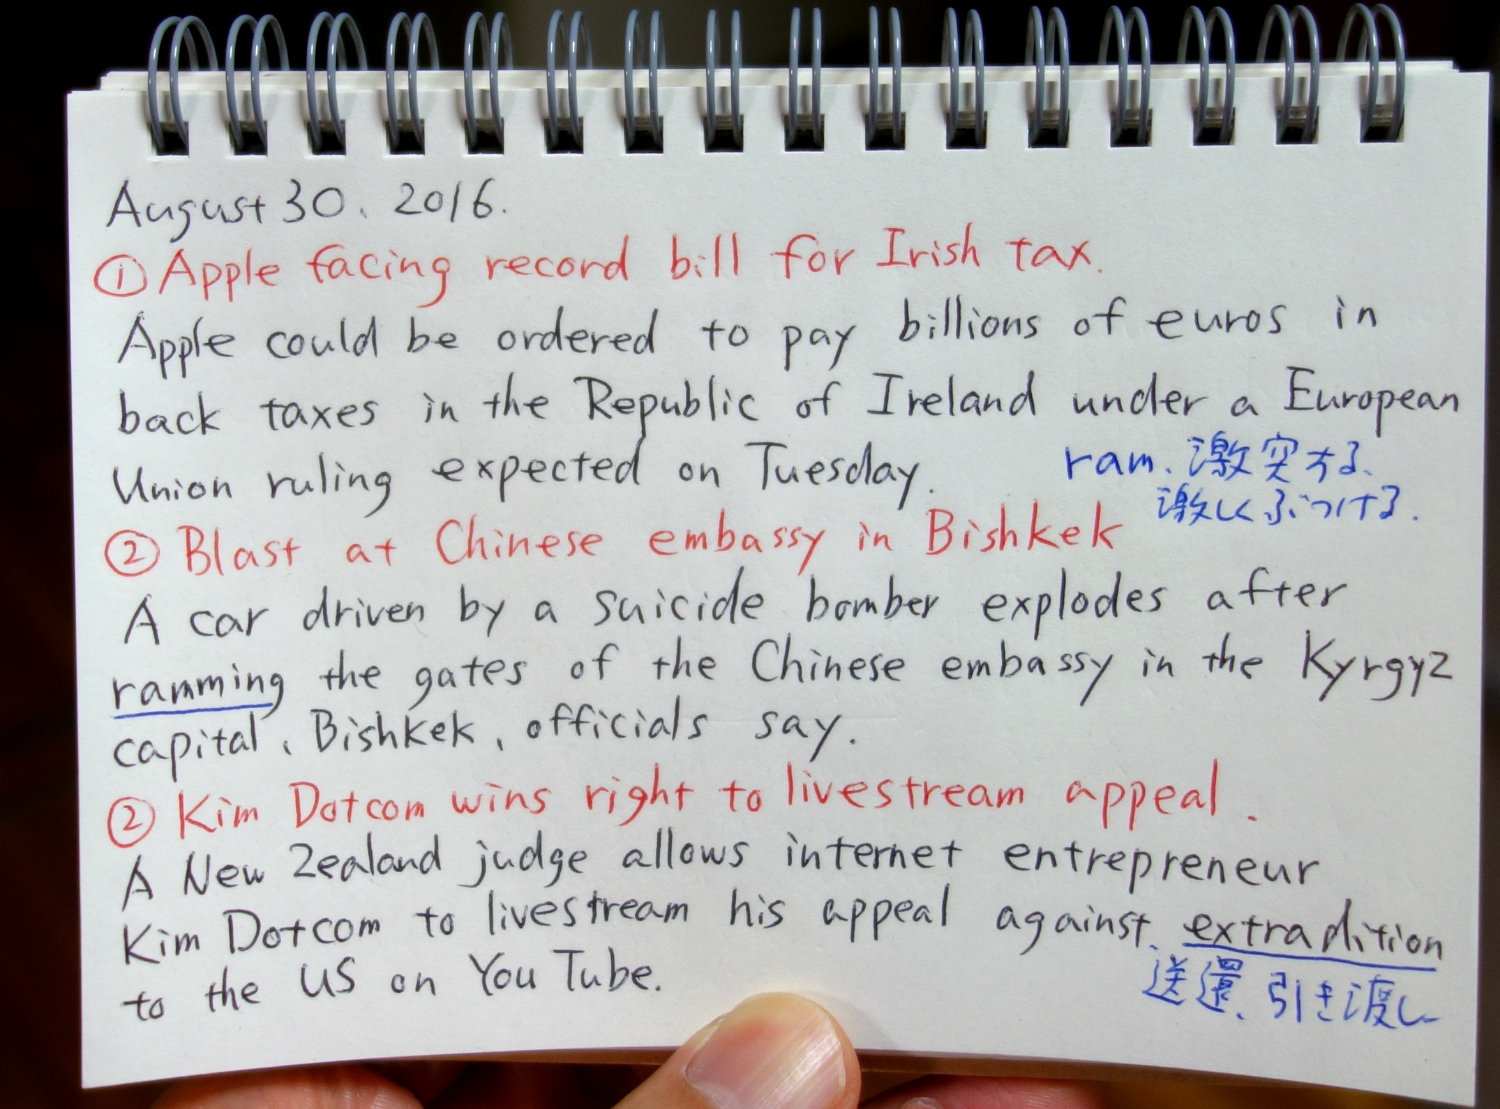 August 30, 2016.
① Apple facing record bill for Irish tax.
Apple could be ordered to pay billions of euros in
back taxes in the Republic of Ireland under a European
Union ruling expected on Tuesday.
ram. 激突する、
激しくぶつける.
② Blast at Chinese embassy in Bishkek
A car driven by a suicide bomber explodes after
ramming the gates of the Chinese embassy in the Kyrgyz
capital, Bishkek, officials say.
② Kim Dotcom wins right to livestream appeal.
A New Zealand judge allows internet entrepreneur
Kim Dotcom to livestream his appeal against extradition
to the US on YouTube.
送還、引き渡し